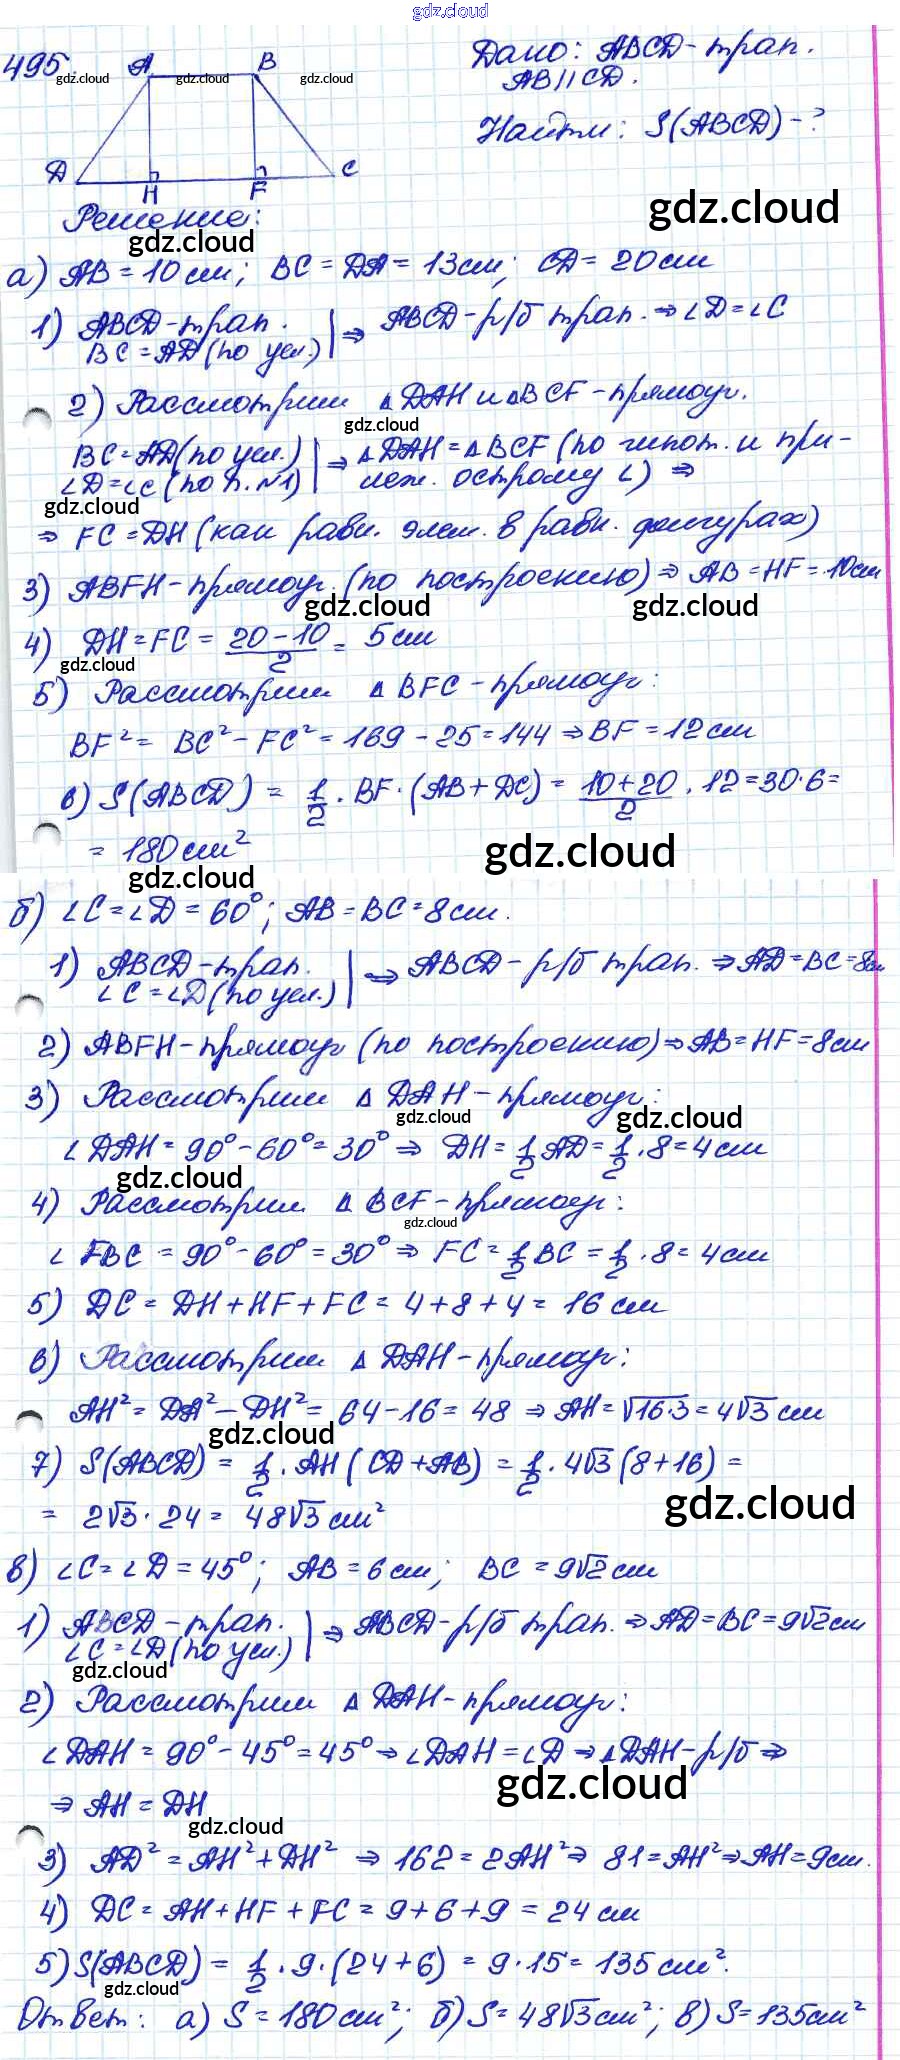 gdz.cloud
495.
A B
Дано: ABCD-трап.
AB||CD.
gdz.cloud gdz.cloud gdz.cloud
Найти: S(ABCD)-?
D H F C
gdz.cloud
Решение:
gdz.cloud
а) AB = 10 см; BC = DA = 13 см; CD = 20 см
1) ABCD-трап. | ⇒ ABCD-р/б трап. ⇒ ∠D=∠C
BC = AD (по усл.)
2) Рассмотрим △DAH и △BCF-прямоуг.
gdz.cloud
BC=AD (по усл.) | ⇒ △DAH = △BCF (по гипот. и при-
∠D=∠C (по п.№1) леж. острому ∠) ⇒
gdz.cloud
⇒ FC = DH (как равн. элем. в равн. фигурах)
3) ABFH-прямоуг. (по построению) ⇒ AB = HF = 10см
gdz.cloud gdz.cloud
4) DH = FC = (20-10)/2 = 5 см
gdz.cloud
5) Рассмотрим △BFC-прямоуг:
BF² = BC² - FC² = 169 - 25 = 144 ⇒ BF = 12 см
6) S(ABCD) = 1/2 · BF · (AB + DC) = (10+20)/2 · 12 = 30·6 =
= 180 см²
gdz.cloud
gdz.cloud
б) ∠C = ∠D = 60°; AB = BC = 8 см.
1) ABCD-трап. | ⇒ ABCD-р/б трап. ⇒ AD = BC = 8см
∠C = ∠D (по усл.)
2) ABFH-прямоуг (по построению) ⇒ AB = HF = 8 см
3) Рассмотрим △DAH-прямоуг:
gdz.cloud gdz.cloud
∠DAH = 90° - 60° = 30° ⇒ DH = 1/2 AD = 1/2 · 8 = 4 см
gdz.cloud
4) Рассмотрим △BCF-прямоуг:
gdz.cloud
∠FBC = 90° - 60° = 30° ⇒ FC = 1/2 BC = 1/2 · 8 = 4 см
5) DC = DH + HF + FC = 4 + 8 + 4 = 16 см
6) Рассмотрим △DAH-прямоуг:
AH² = DA² - DH² = 64 - 16 = 48 ⇒ AH = √16·3 = 4√3 см
gdz.cloud
7) S(ABCD) = 1/2 · AH (CD + AB) = 1/2 · 4√3 (8+16) =
= 2√3 · 24 = 48√3 см²
gdz.cloud
в) ∠C = ∠D = 45°; AB = 6 см; BC = 9√2 см
1) ABCD-трап. | ⇒ ABCD-р/б трап. ⇒ AD = BC = 9√2 см
∠C = ∠D (по усл.)
gdz.cloud
2) Рассмотрим △DAH-прямоуг:
∠DAH = 90° - 45° = 45° ⇒ ∠DAH = ∠D ⇒ △DAH-р/б ⇒
⇒ AH = DH
gdz.cloud
gdz.cloud
3) AD² = AH² + DH² ⇒ 162 = 2AH² ⇒ 81 = AH² ⇒ AH = 9см.
4) DC = AH + HF + FC = 9 + 6 + 9 = 24 см
5) S(ABCD) = 1/2 · 9 · (24 + 6) = 9 · 15 = 135 см².
gdz.cloud
Ответ: а) S = 180 см²; б) S = 48√3 см²; в) S = 135 см²